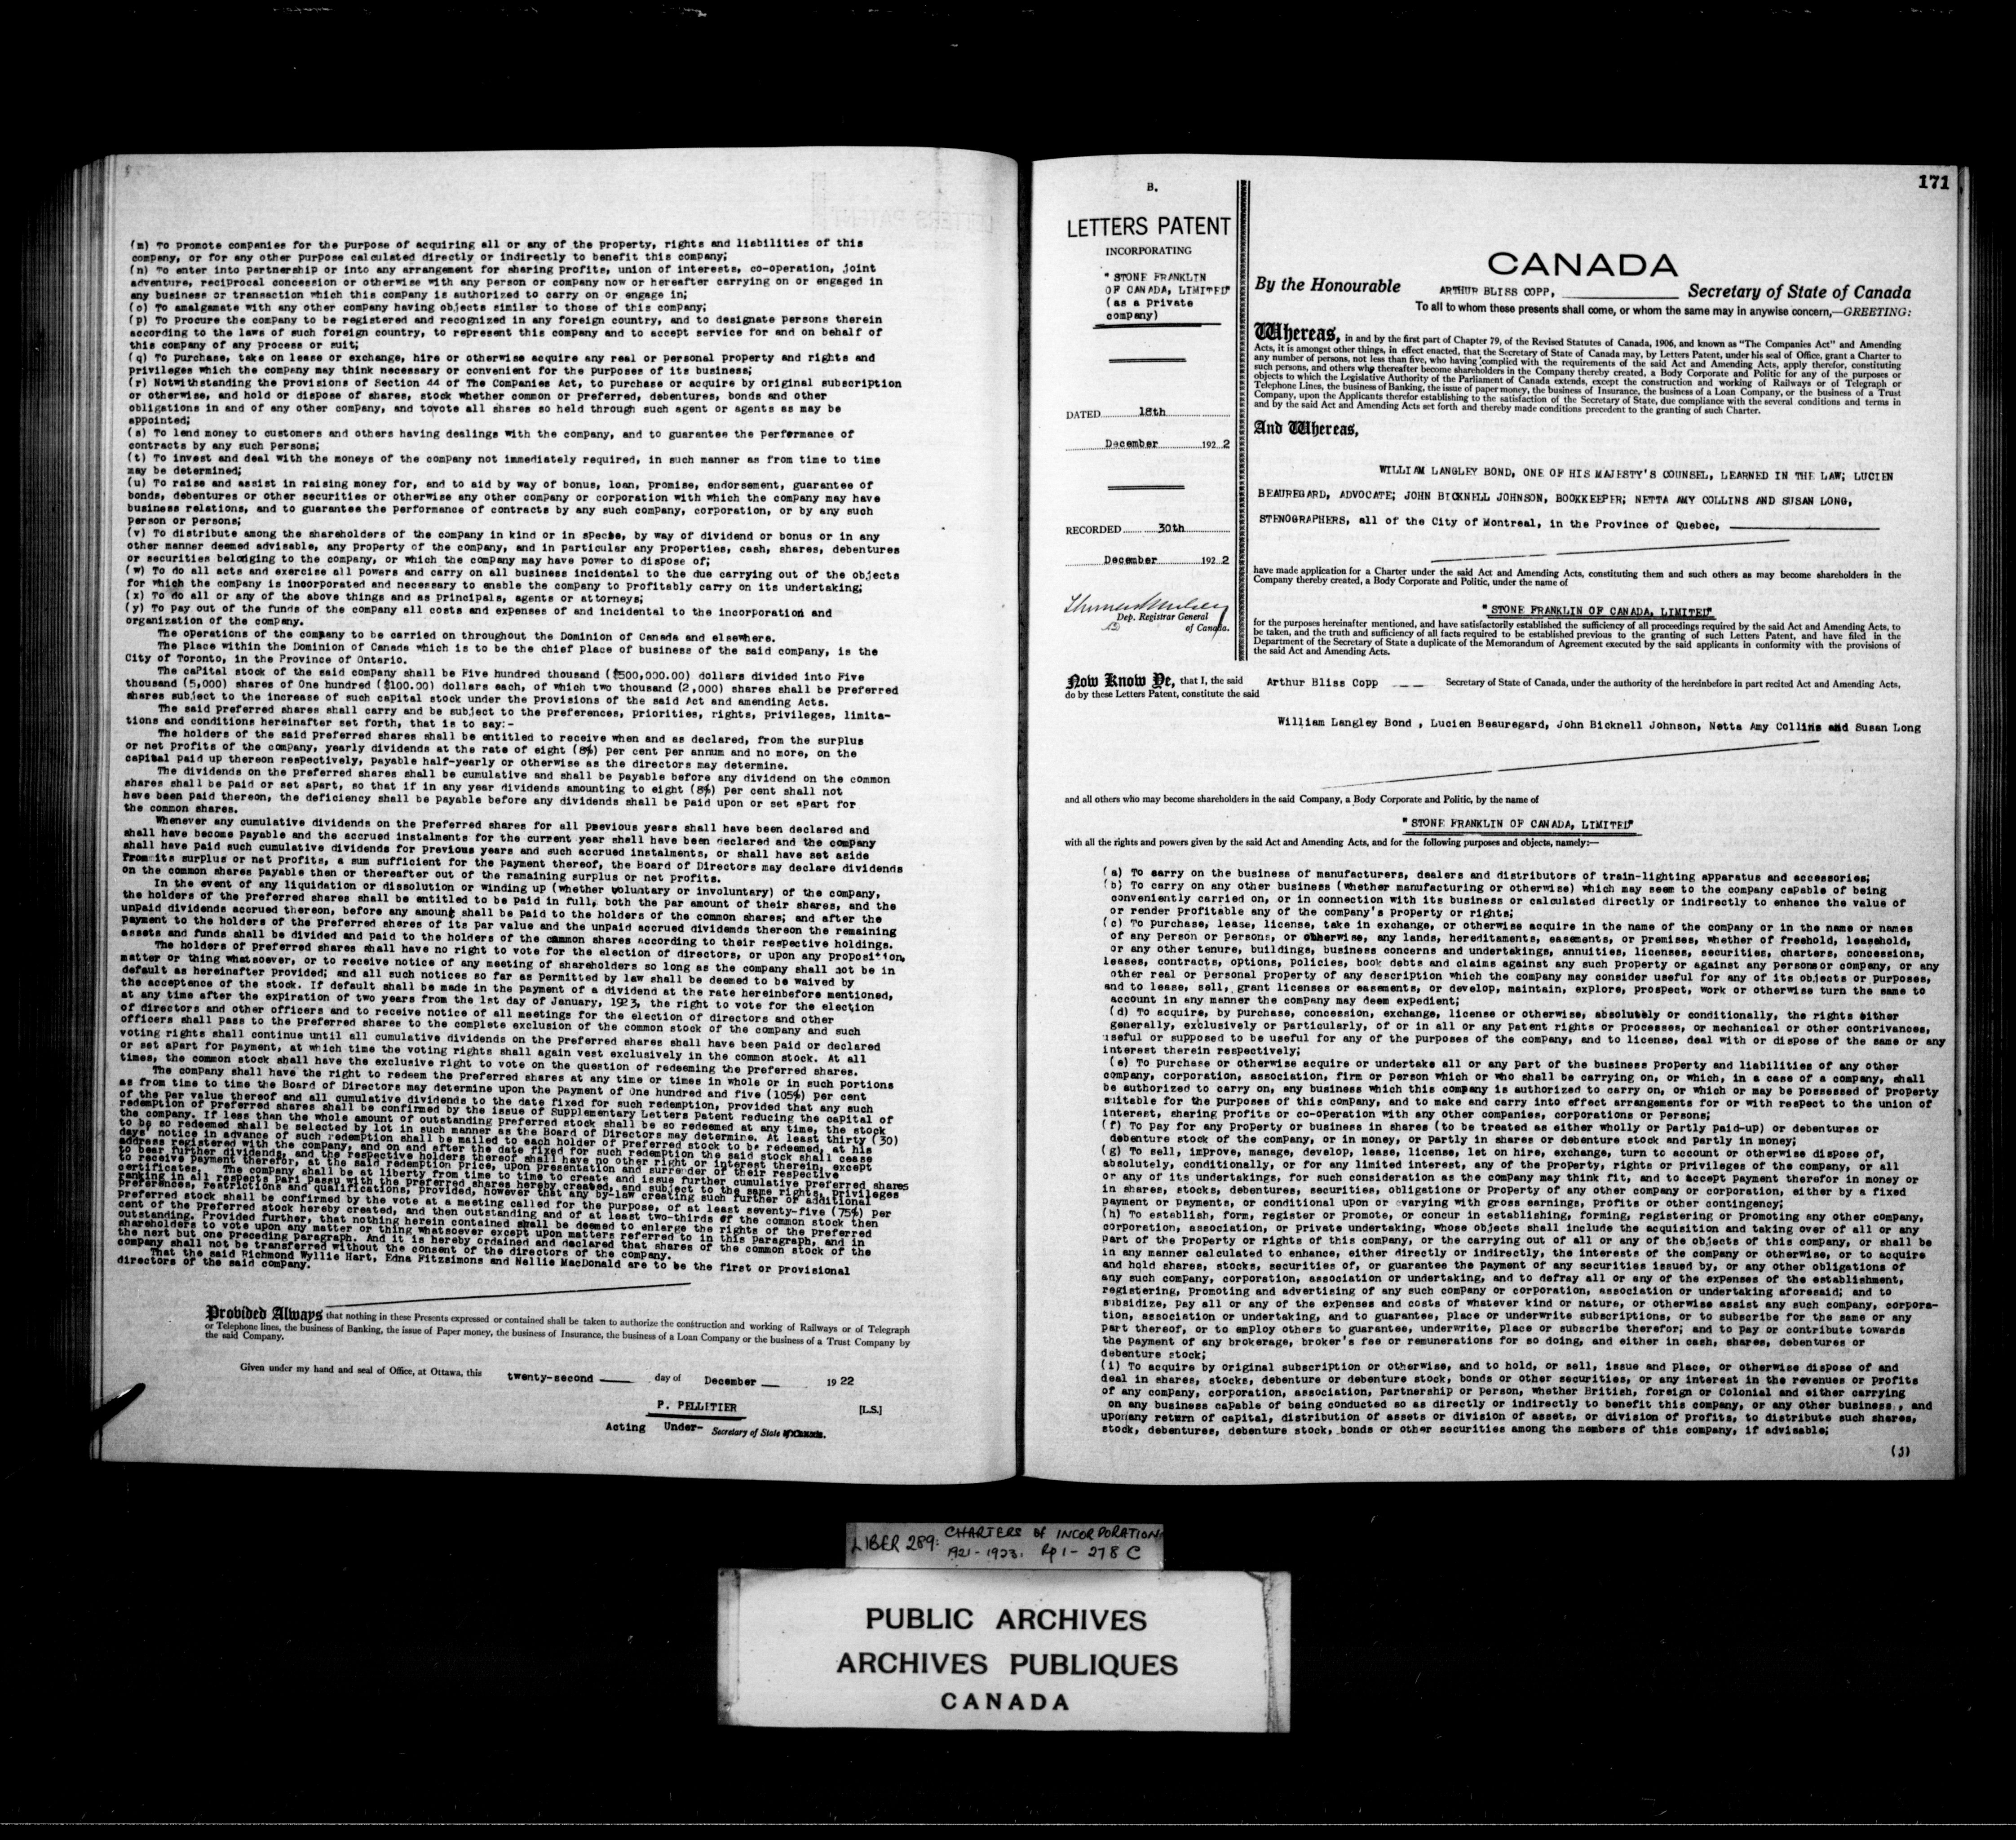 (m) To promote companies for the purpose of acquiring all or any of the property, rights and liabilities of this
company, or for any other purpose calculated directly or indirectly to benefit this company;
(n) To enter into partnership or into any arrangement for sharing profits, union of interests, co-operation, joint
adventure, reciprocal concession or otherwise with any person or company now or hereafter carrying on or engaged in
any business or transaction which this company is authorized to carry on or engage in;
(o) To amalgamate with any other company having objects similar to those of this company;
(p) To procure the company to be registered and recognized in any foreign country, and to designate persons therein
according to the laws of such foreign country, to represent this company and to accept service for and on behalf of
this company of any process or suit;
(q) To purchase, take on lease or exchange, hire or otherwise acquire any real or personal property and rights and
privileges which the company may think necessary or convenient for the purposes of its business;
(r) Notwithstanding the provisions of Section 44 of The Companies Act, to purchase or acquire by original subscription
or otherwise, and hold or dispose of shares, stock whether common or preferred, debentures, bonds and other
obligations in and of any other company, and tovote all shares so held through such agent or agents as may be
appointed;
(s) To lend money to customers and others having dealings with the company, and to guarantee the performance of
contracts by any such persons;
(t) To invest and deal with the moneys of the company not immediately required, in such manner as from time to time
may be determined;
(u) To raise and assist in raising money for, and to aid by way of bonus, loan, promise, endorsement, guarantee of
bonds, debentures or other securities or otherwise any other company or corporation with which the company may have
business relations, and to guarantee the performance of contracts by any such company, corporation, or by any such
person or persons;
(v) To distribute among the shareholders of the company in kind or in specie, by way of dividend or bonus or in any
other manner deemed advisable, any property of the company, and in particular any properties, cash, shares, debentures
or securities belonging to the company, or which the company may have power to dispose of;
(w) To do all acts and exercise all powers and carry on all business incidental to the due carrying out of the objects
for which the company is incorporated and necessary to enable the company to profitably carry on its undertaking;
(x) To do all or any of the above things and as principals, agents or attorneys;
(y) To pay out of the funds of the company all costs and expenses of and incidental to the incorporation and
organization of the company.
The operations of the company to be carried on throughout the Dominion of Canada and elsewhere.
The place within the Dominion of Canada which is to be the chief place of business of the said company, is the
City of Toronto, in the Province of Ontario.
The capital stock of the said company shall be Five hundred thousand ($500,000.00) dollars divided into Five
thousand (5,000) shares of One hundred ($100.00) dollars each, of which two thousand (2,000) shares shall be preferred
shares subject to the increase of such capital stock under the provisions of the said Act and amending Acts.
The said preferred shares shall carry and be subject to the preferences, priorities, rights, privileges, limita-
tions and conditions hereinafter set forth, that is to say:-
The holders of the said preferred shares shall be entitled to receive when and as declared, from the surplus
or net profits of the company, yearly dividends at the rate of eight (8%) per cent per annum and no more, on the
capital paid up thereon respectively, payable half-yearly or otherwise as the directors may determine.
The dividends on the preferred shares shall be cumulative and shall be payable before any dividend on the common
shares shall be paid or set apart, so that if in any year dividends amounting to eight (8%) per cent shall not
have been paid thereon, the deficiency shall be payable before any dividends shall be paid upon or set apart for
the common shares.
Whenever any cumulative dividends on the preferred shares for all previous years shall have been declared and
shall have become payable and the accrued instalments for the current year shall have been declared and the company
shall have paid such cumulative dividends for previous years and such accrued instalments, or shall have set aside
from its surplus or net profits, a sum sufficient for the payment thereof, the Board of Directors may declare dividends
on the common shares payable then or thereafter out of the remaining surplus or net profits.
In the event of any liquidation or dissolution or winding up (whether voluntary or involuntary) of the company,
the holders of the preferred shares shall be entitled to be paid in full, both the par amount of their shares, and the
unpaid dividends accrued thereon, before any amount shall be paid to the holders of the common shares; and after the
payment to the holders of the preferred shares of its par value and the unpaid accrued dividends thereon the remaining
assets and funds shall be divided and paid to the holders of the common shares according to their respective holdings.
The holders of preferred shares shall have no right to vote for the election of directors, or upon any proposition,
matter or thing whatsoever, or to receive notice of any meeting of shareholders so long as the company shall not be in
default as hereinafter provided; and all such notices so far as permitted by law shall be deemed to be waived by
the acceptance of the stock. If default shall be made in the payment of a dividend at the rate hereinbefore mentioned,
at any time after the expiration of two years from the 1st day of January, 1923, the right to vote for the election
of directors and other officers and to receive notice of all meetings for the election of directors and other
officers shall pass to the preferred shares to the complete exclusion of the common stock of the company and such
voting rights shall continue until all cumulative dividends on the preferred shares shall have been paid or declared
or set apart for payment, at which time the voting rights shall again vest exclusively in the common stock. At all
times, the common stock shall have the exclusive right to vote on the question of redeeming the preferred shares.
The company shall have the right to redeem the preferred shares at any time or times in whole or in such portions
as from time to time the Board of Directors may determine upon the payment of One hundred and five (105%) per cent
of the par value thereof and all cumulative dividends to the date fixed for such redemption, provided that any such
redemption of preferred shares shall be confirmed by the issue of Supplementary Letters Patent reducing the capital of
the company. If less than the whole amount of outstanding preferred stock shall be so redeemed at any time, the stock
to be so redeemed shall be selected by lot in such manner as the Board of Directors may determine. At least thirty (30)
days' notice in advance of such redemption shall be mailed to each holder of preferred stock to be redeemed, at his
address registered with the company, and on and after the date fixed for such redemption the said stock shall cease
to bear further dividends, and the respective holders thereof shall have no other right or interest therein, except
to receive payment therefor, at the said redemption price, upon presentation and surrender of their respective
certificates. The company shall be at liberty from time to time to create and issue further cumulative preferred shares
ranking in all respects pari passu with the preferred shares hereby created, and subject to the same rights, privileges
preferences, restrictions and qualifications, provided, however that any by-law creating such further or additional
preferred stock shall be confirmed by the vote at a meeting called for the purpose, of at least seventy-five (75%) per
cent of the preferred stock hereby created, and then outstanding and of at least two-thirds of the common stock then
outstanding. Provided further, that nothing herein contained shall be deemed to enlarge the rights of the preferred
shareholders to vote upon any matter or thing whatsoever except upon matters referred to in this paragraph, and in
the next but one preceding paragraph. And it is hereby ordained and declared that shares of the common stock of the
company shall not be transferred without the consent of the directors of the company.
That the said Richmond Wyllie Hart, Edna Fitzsimons and Nellie MacDonald are to be the first or provisional
directors of the said company.
Provided Always that nothing in these Presents expressed or contained shall be taken to authorize the construction and working of Railways or of Telegraph
or Telephone lines, the business of Banking, the issue of Paper money, the business of Insurance, the business of a Loan Company or the business of a Trust Company by
the said Company.
Given under my hand and seal of Office, at Ottawa, this twenty-second day of December 1922
P. PELLITIER [L.S.]
Acting Under- Secretary of State
171
B.
LETTERS PATENT
INCORPORATING
"STONE FRANKLIN
OF CANADA, LIMITED"
(as a private
company)
DATED 18th
December 1922
RECORDED 30th
December 1922
Dep. Registrar General
of Canada.
CANADA
By the Honourable ARTHUR BLISS COPP, Secretary of State of Canada
To all to whom these presents shall come, or whom the same may in anywise concern,—GREETING:
Whereas, in and by the first part of Chapter 79, of the Revised Statutes of Canada, 1906, and known as "The Companies Act" and Amending
Acts, it is amongst other things, in effect enacted, that the Secretary of State of Canada may, by Letters Patent, under his seal of Office, grant a Charter to
any number of persons, not less than five, who having complied with the requirements of the said Act and Amending Acts, apply therefor, constituting
such persons, and others who thereafter become shareholders in the Company thereby created, a Body Corporate and Politic for any of the purposes or
objects to which the Legislative Authority of the Parliament of Canada extends, except the construction and working of Railways or of Telegraph or
Telephone Lines, the business of Banking, the issue of paper money, the business of Insurance, the business of a Loan Company, or the business of a Trust
Company, upon the Applicants therefor establishing to the satisfaction of the Secretary of State, due compliance with the several conditions and terms in
and by the said Act and Amending Acts set forth and thereby made conditions precedent to the granting of such Charter.
And Whereas,
WILLIAM LANGLEY BOND, ONE OF HIS MAJESTY'S COUNSEL, LEARNED IN THE LAW; LUCIEN
BEAUREGARD, ADVOCATE; JOHN BICKNELL JOHNSON, BOOKKEEPER; NETTA AMY COLLINS AND SUSAN LONG,
STENOGRAPHERS, all of the City of Montreal, in the Province of Quebec,
have made application for a Charter under the said Act and Amending Acts, constituting them and such others as may become shareholders in the
Company thereby created, a Body Corporate and Politic, under the name of
"STONE FRANKLIN OF CANADA, LIMITED"
for the purposes hereinafter mentioned, and have satisfactorily established the sufficiency of all proceedings required by the said Act and Amending Acts, to
be taken, and the truth and sufficiency of all facts required to be established previous to the granting of such Letters Patent, and have filed in the
Department of the Secretary of State a duplicate of the Memorandum of Agreement executed by the said applicants in conformity with the provisions of
the said Act and Amending Acts.
Now Know Ye, that I, the said Arthur Bliss Copp Secretary of State of Canada, under the authority of the hereinbefore in part recited Act and Amending Acts,
do by these Letters Patent, constitute the said
William Langley Bond , Lucien Beauregard, John Bicknell Johnson, Netta Amy Collins and Susan Long
and all others who may become shareholders in the said Company, a Body Corporate and Politic, by the name of
"STONE FRANKLIN OF CANADA, LIMITED"
with all the rights and powers given by the said Act and Amending Acts, and for the following purposes and objects, namely:—
(a) To carry on the business of manufacturers, dealers and distributors of train-lighting apparatus and accessories;
(b) To carry on any other business (whether manufacturing or otherwise) which may seem to the company capable of being
conveniently carried on, or in connection with its business or calculated directly or indirectly to enhance the value of
or render profitable any of the company's property or rights;
(c) To purchase, lease, license, take in exchange, or otherwise acquire in the name of the company or in the name or names
of any person or persons, or otherwise, any lands, hereditaments, easements, or premises, whether of freehold, leasehold,
or any other tenure, buildings, business concerns and undertakings, annuities, licenses, securities, charters, concessions,
leases, contracts, options, policies, book debts and claims against any such property or against any personsor company, or any
other real or personal property of any description which the company may consider useful for any of its objects or purposes,
and to lease, sell, grant licenses or easements, or develop, maintain, explore, prospect, work or otherwise turn the same to
account in any manner the company may deem expedient;
(d) To acquire, by purchase, concession, exchange, license or otherwise, absolutely or conditionally, the rights either
generally, exclusively or particularly, of or in all or any patent rights or processes, or mechanical or other contrivances,
useful or supposed to be useful for any of the purposes of the company, and to license, deal with or dispose of the same or any
interest therein respectively;
(e) To purchase or otherwise acquire or undertake all or any part of the business property and liabilities of any other
company, corporation, association, firm or person which or who shall be carrying on, or which, in a case of a company, shall
be authorized to carry on, any business which this company is authorized to carry on, or which or may be possessed of property
suitable for the purposes of this company, and to make and carry into effect arrangements for or with respect to the union of
interest, sharing profits or co-operation with any other companies, corporations or persons;
(f) To pay for any property or business in shares (to be treated as either wholly or partly paid-up) or debentures or
debenture stock of the company, or in money, or partly in shares or debenture stock and partly in money;
(g) To sell, improve, manage, develop, lease, license, let on hire, exchange, turn to account or otherwise dispose of,
absolutely, conditionally, or for any limited interest, any of the property, rights or privileges of the company, or all
or any of its undertakings, for such consideration as the company may think fit, and to accept payment therefor in money or
in shares, stocks, debentures, securities, obligations or property of any other company or corporation, either by a fixed
payment or payments, or conditional upon or varying with gross earnings, profits or other contingency;
(h) To establish, form, register or promote, or concur in establishing, forming, registering or promoting any other company,
corporation, association, or private undertaking, whose objects shall include the acquisition and taking over of all or any
part of the property or rights of this company, or the carrying out of all or any of the objects of this company, or shall be
in any manner calculated to enhance, either directly or indirectly, the interests of the company or otherwise, or to acquire
and hold shares, stocks, securities of, or guarantee the payment of any securities issued by, or any other obligations of
any such company, corporation, association or undertaking, and to defray all or any of the expenses of the establishment,
registering, promoting and advertising of any such company or corporation, association or undertaking aforesaid; and to
subsidize, pay all or any of the expenses and costs of whatever kind or nature, or otherwise assist any such company, corpora-
tion, association or undertaking, and to guarantee, place or underwrite subscriptions, or to subscribe for the same or any
part thereof, or to employ others to guarantee, underwrite, place or subscribe therefor; and to pay or contribute towards
the payment of any brokerage, broker's fee or remunerations for so doing, and either in cash, shares, debentures or
debenture stock;
(i) To acquire by original subscription or otherwise, and to hold, or sell, issue and place, or otherwise dispose of and
deal in shares, stocks, debenture or debenture stock, bonds or other securities, or any interest in the revenues or profits
of any company, corporation, association, partnership or person, whether British, foreign or Colonial and either carrying
on any business capable of being conducted so as directly or indirectly to benefit this company, or any other business, and
upon any return of capital, distribution of assets or division of assets, or division of profits, to distribute such shares,
stock, debentures, debenture stock, bonds or other securities among the members of this company, if advisable;
(j)
LIBER 289: CHARTERS of INCORPORATION
1921 - 1923. Pp 1 - 278 C
PUBLIC ARCHIVES
ARCHIVES PUBLIQUES
CANADA